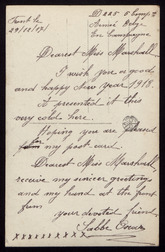 Front le
29/12/17
D 225 e Comp. 2
Armée Belge
En Campagne
Dearest Miss Marshall.
I wish you a good
and happy New Year 1918.
At presented it this
very cold here.
Hoping you are pleased
in my post card.
Dearest Miss Marshall
receive my sincerer greetings
and my hand at the front
from
your devoted friend
xxxxxxxxx